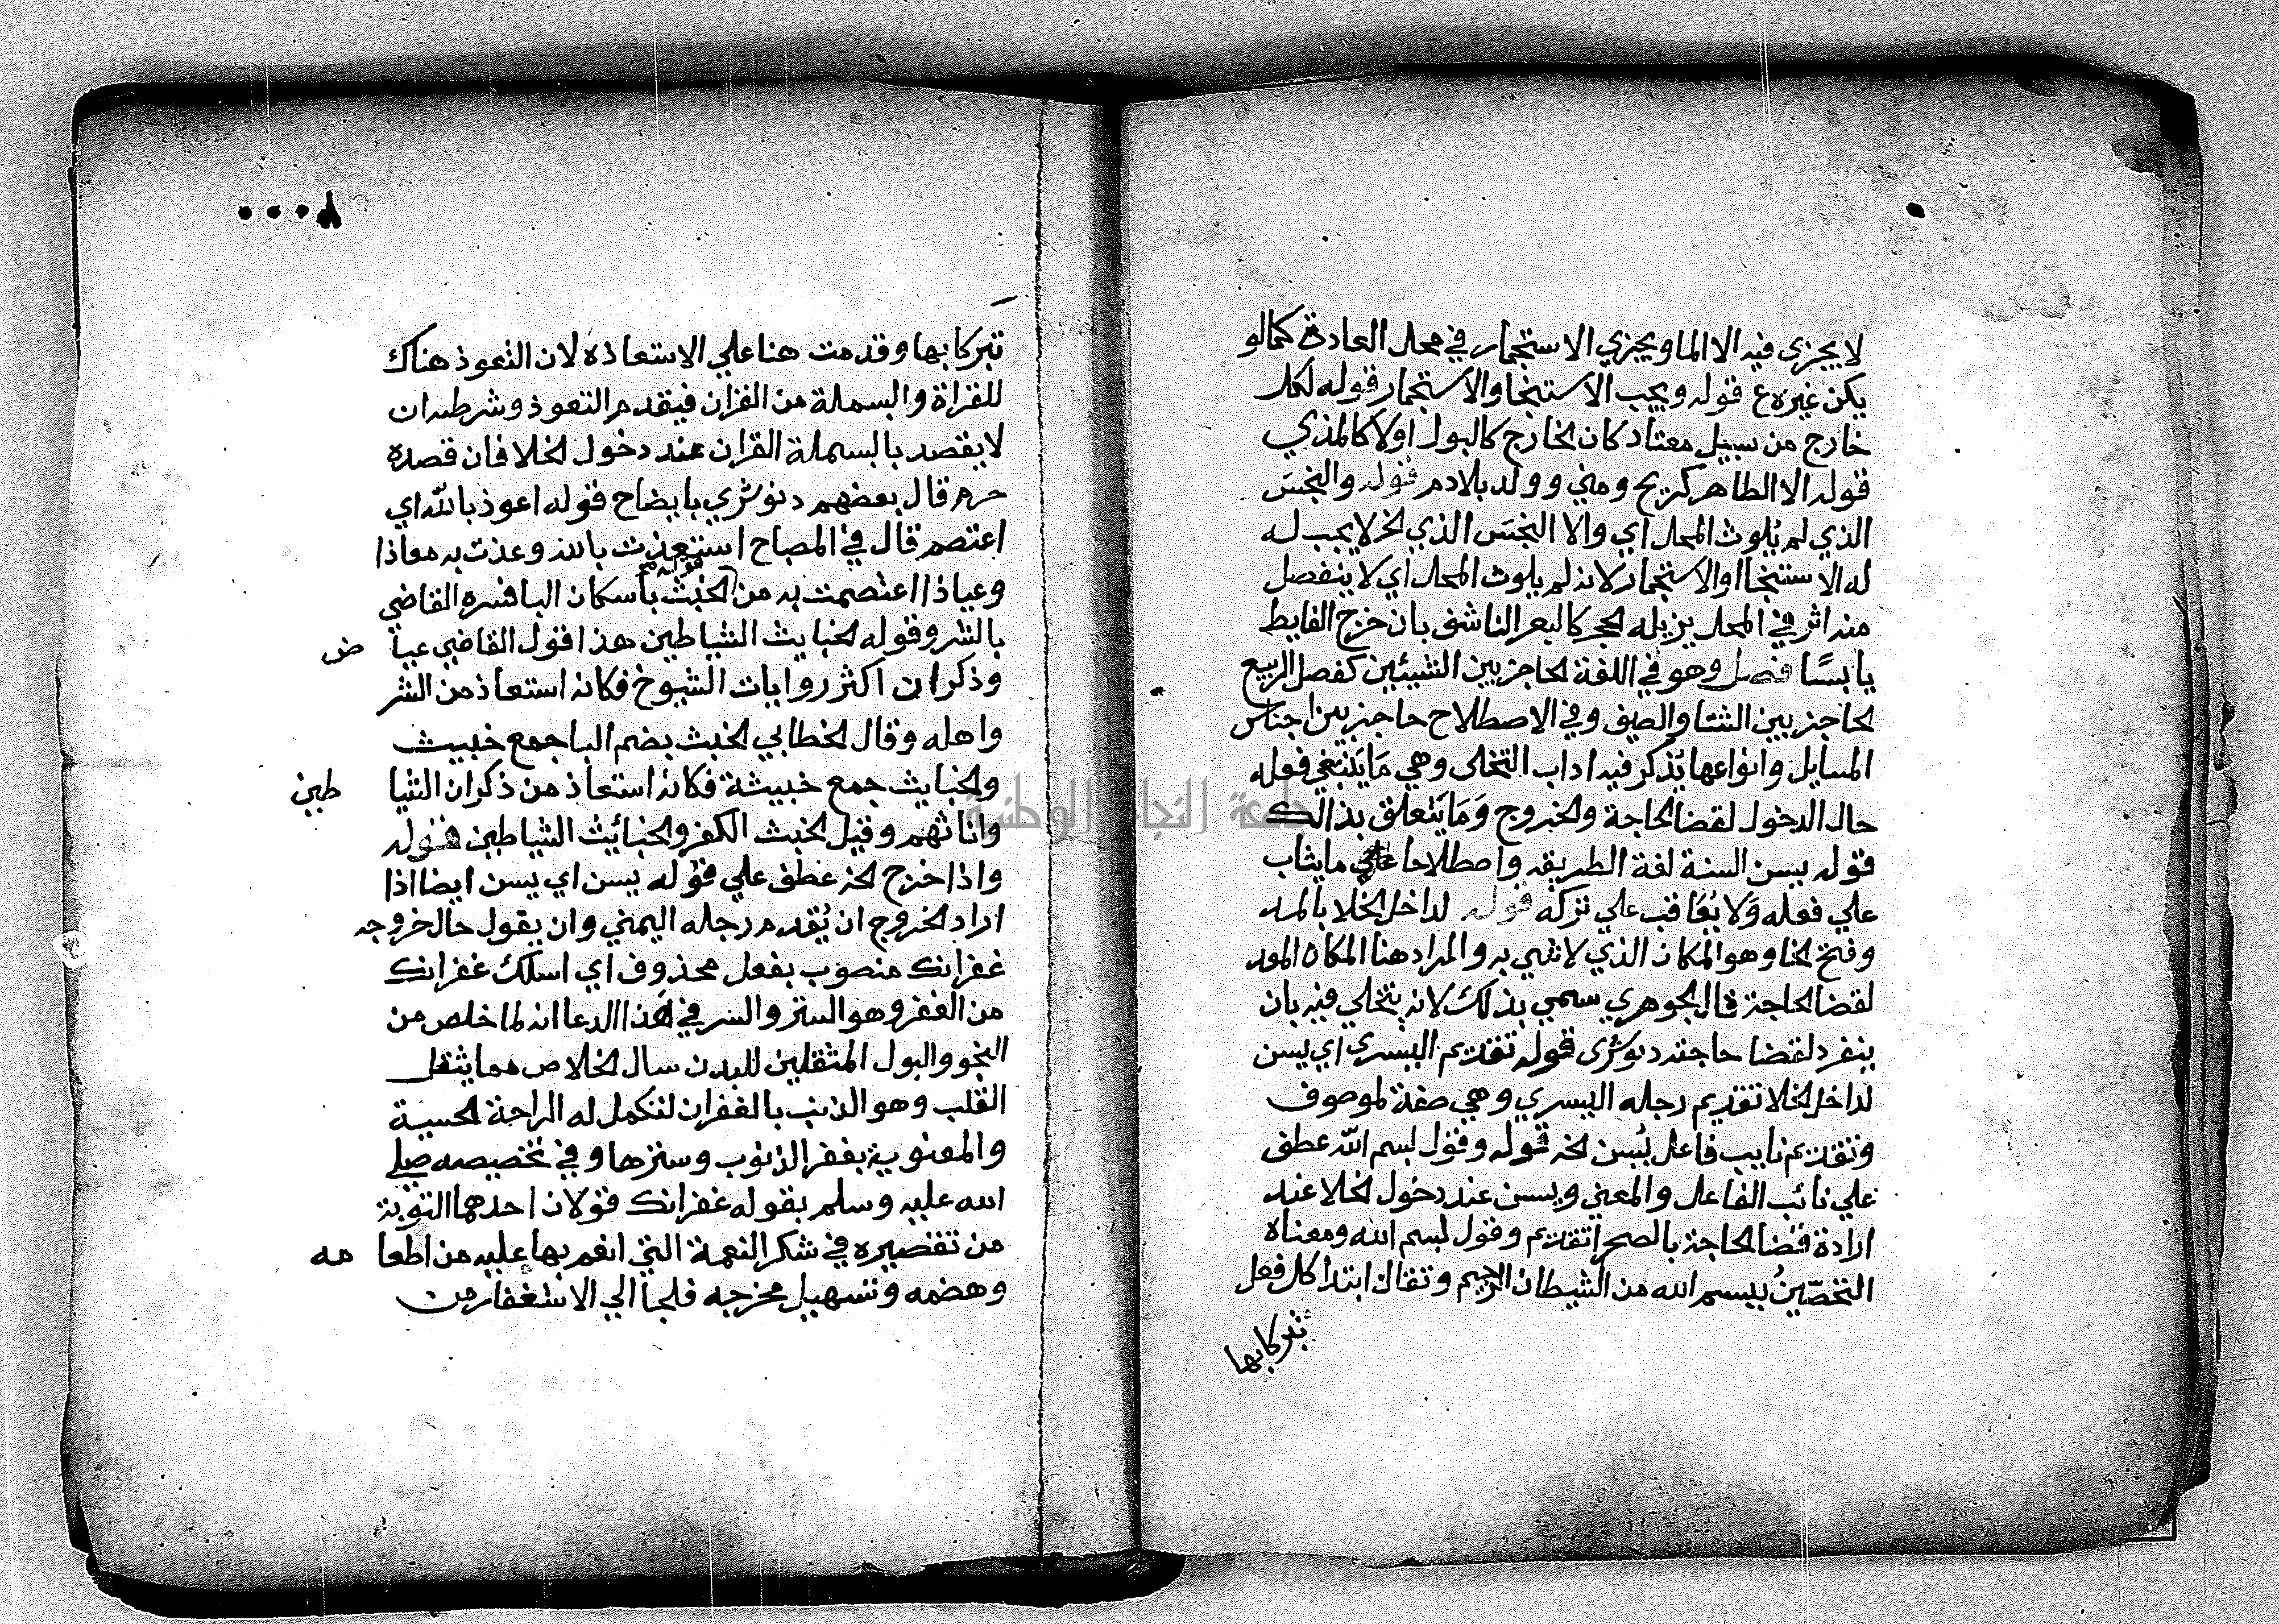 لا يجزي فيه الا الما ويجزي الاستجمار في محل العادة كما لو
يكن غيره ع قوله ويجب الاستنجا والاستجمار قوله لكل
خارج من سبيل معتاد كان الخارج كالبول اولا كالمذي
قوله الا الطاهر كريح ومني وولد بلا دم قوله والنجسَ
الذي لم يُلوث المحل اي والا النجسَ الذي لخ لا يجب له
له الاستنجا او الاستجمار لانه لم يلوث المحل اي لا ينفصل
منه اثر في المحل يزيله الحجر كالبعر الناشف بان خرج الغايط
يابسًا فصل وهو في اللغة الحاجز بين الشيئين كفصل الربيع
الحاجز بين الشتا والصيف وفي الاصطلاح حاجز بين اجناس
المسايل وانواعها يذكر فيه اداب التخلى وهي مَا يَنْبَغي فعله
حال الدخول لقضا الحاجة والخروج وَمَا يَتعلق بذالك
قوله يسن السنة لغة الطريقه واصطلاحا على ما يثاب
علي فعله وَلا يُعَاقب علي تركه قوله لداخل الخلا بالمد
وفتح الخا وهو المكان الذي لا شي به والمراد هنا المكان المعد
لقضا الحاجة قال الجوهري سمي بذلك لانه يتخلي فيه بان
ينفرد لقضا حاجته دنوشرى قوله تقديم اليسرى اي يسن
لداخل الخلا تقديم رجله اليسري وهي صفة لموصوف
وتقديم نايب فاعل يُسن لخ قوله وقول بسم الله عطف
علي نائب الفاعل والمعني ويسن عند دخول الخلا عند
ارادة قضا الحاجة بالصحرا تقديم وقول بسم الله ومعناه
التحصّينُ ببسم الله من الشيطان الرجيم وتقال ابتدا كل فعل
تبركا بها
تبركا بها وقدمت هنا علي الاستعاذه لان التعوذ هناك
للقراة والبسملة من القران فيقدم التعوذ وشرطه ان
لا يقصد بالبسملة القران عند دخول الخلا فان قصده
حرم قال بعضهم دنوشري بايضاح قوله اعوذ بالله اي
اعتصم قال في المصباح استعذت بالله وعذت به معاذا
وعياذا اعتصمت به من الخبث باسكان البا فسره القاضي
بالشر وقوله الخبايث الشياطين هذا قول القاضي عيا ض
وذكر ان اكثر روايات الشيوخ فكانه استعاذ من الشر
واهله وقال الخطابي الخبث بضم البا جمع خبيث
والخبايث جمع خبيثة فكانه استعاذ من ذكران الشيا طين
واناثهم وقيل الخبث الكفر والخبائث الشياطين قوله
واذا خرج لخ عطف علي قوله يسن اي يسن ايضا اذا
اراد الخروج ان يُقدم رجله اليمني وان يقول حال خروجه
غفرانك منصوب بفعل محذوف اي اسلك غفرانك
من الغفر وهو الستر والسر في هَذا الدعا انه لما خلص من
النجو والبول المثقلين للبدن سال الخلاص مما يثقل
القلب وهو الذنب بالغفران لتكمل له الراحة الحسية
والمعنوية بغفر الذنوب وسترها وفي تخصيصه صلي
الله عليه وسلم بقوله غفرانك قولان احدهما التوبة
من تقصيره في شكر النعمة التي انعم بها عليه من اطعا مه
وهضمه وتسهيل مخرجه فلجا الي الاستغفار من
جامعة النجاح الوطنية